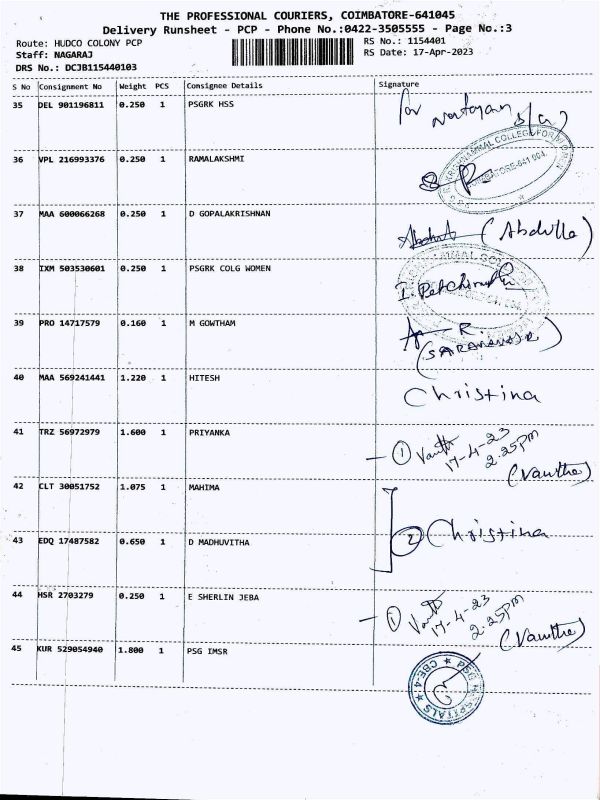 THE PROFESSIONAL COURIERS, COIMBATORE-641045
Delivery Runsheet - PCP - Phone No.:0422-3505555 - Page No.:3
Route: HUDCO COLONY PCP
Staff: NAGARAJ
DRS No.: DCJB115440103
RS No.: 1154401
RS Date: 17-Apr-2023
S No Consignment No Weight PCS Consignee Details Signature
35 DEL 901196811 0.250 1 PSGRK HSS for
36 VPL 216993376 0.250 1 RAMALAKSHMI
COIMBATORE-641 004
37 MAA 600066268 0.250 1 D GOPALAKRISHNAN (Abdulla)
38 IXM 503530601 0.250 1 PSGRK COLG WOMEN
39 PRO 14717579 0.160 1 M GOWTHAM R.
40 MAA 569241441 1.220 1 HITESH Christina
41 TRZ 56972979 1.600 1 PRIYANKA 1 17-4-23
2.25pm
42 CLT 30051752 1.075 1 MAHIMA
2 Christina
43 EDQ 17487582 0.650 1 D MADHUVITHA
44 HSR 2703279 0.250 1 E SHERLIN JEBA 1 17-4-23
2.25pm
45 KUR 529054940 1.800 1 PSG IMSR
PSG HOSPITALS CBE-4